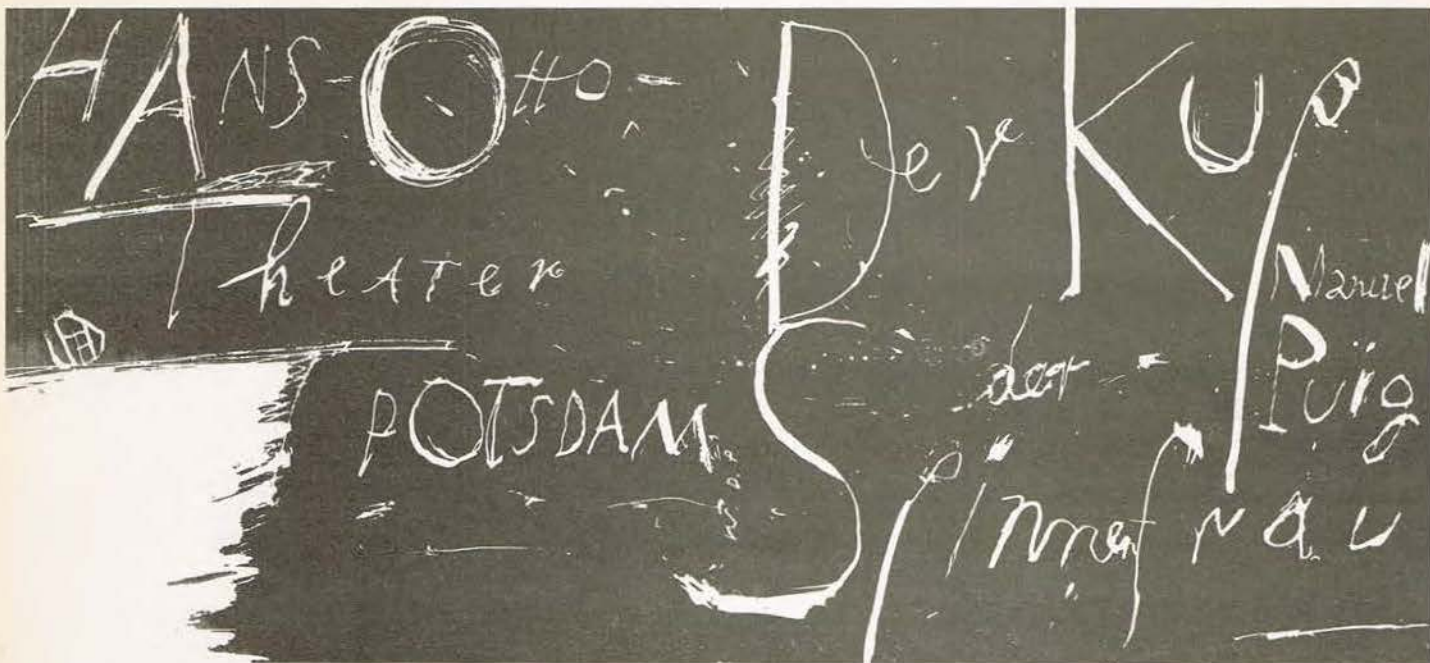 HANS-OttO-
TheATer
POTSDAM
Der Kuß
der
Spinnenfrau
Manuel
Puig